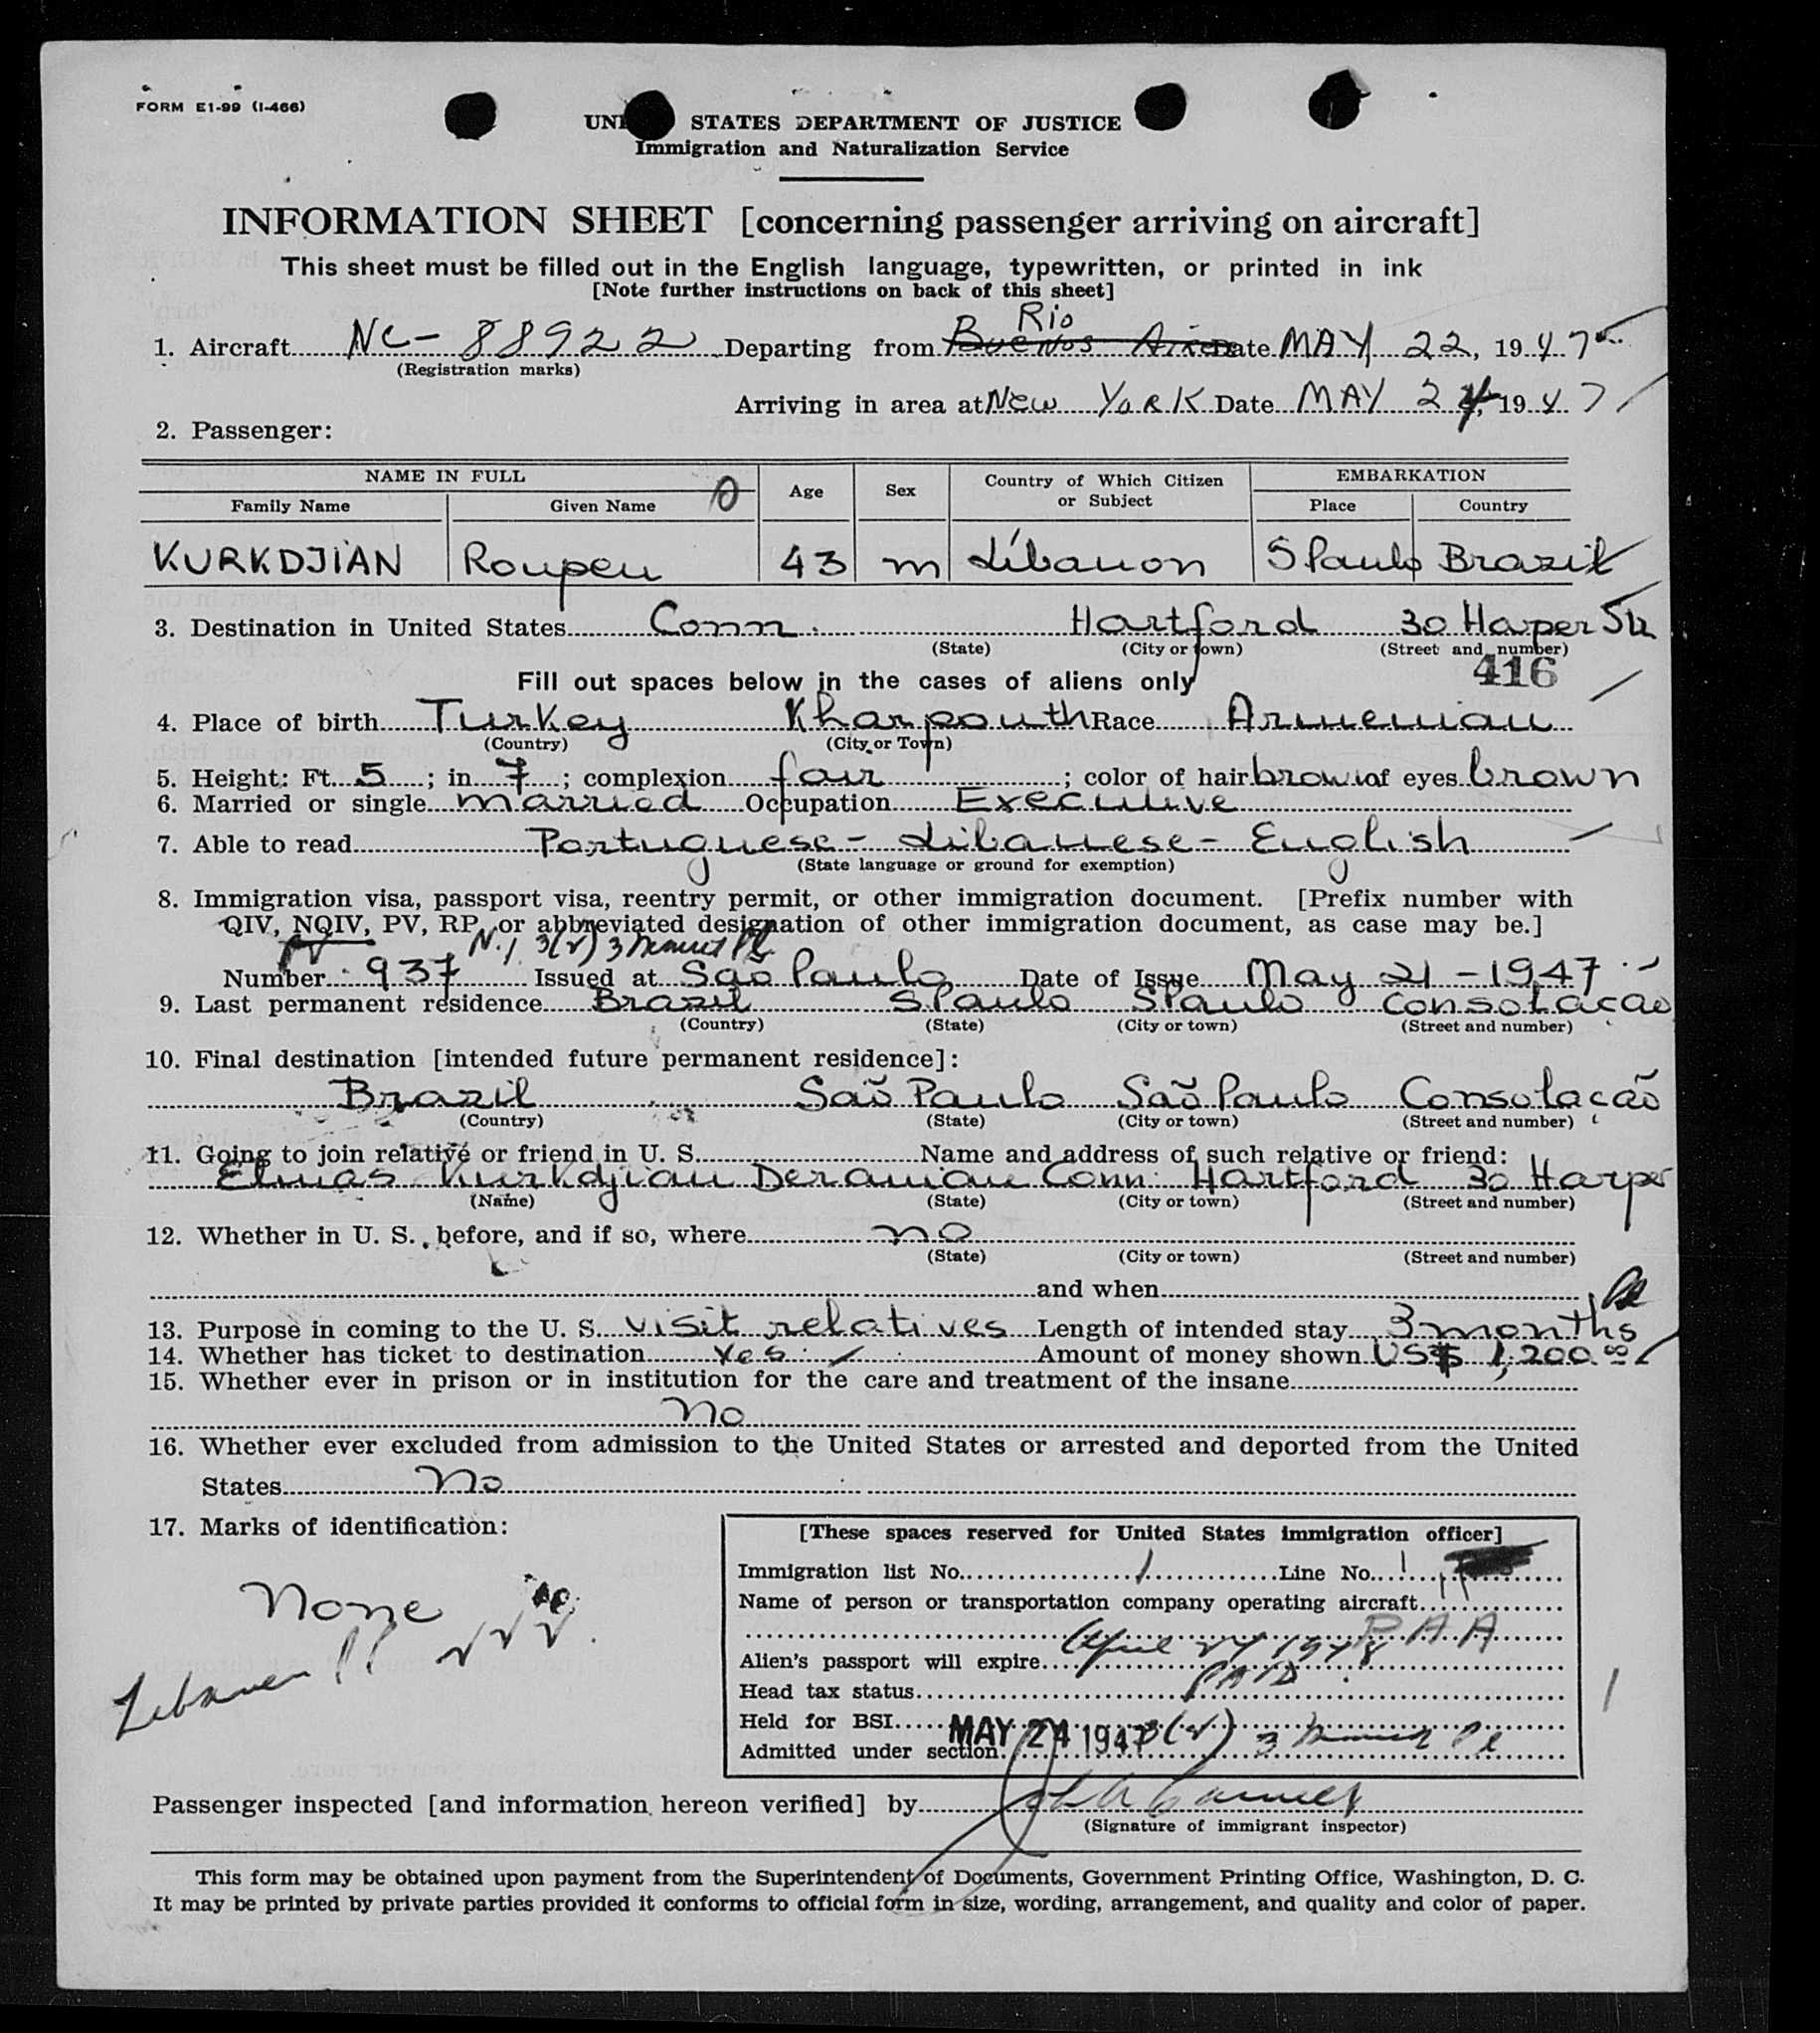 FORM E1-99 (I-466)
UNI STATES DEPARTMENT OF JUSTICE
Immigration and Naturalization Service
INFORMATION SHEET [concerning passenger arriving on aircraft]
This sheet must be filled out in the English language, typewritten, or printed in ink
[Note further instructions on back of this sheet]
Rio
1. Aircraft NC-88922 Departing from Buenos Aires Date MAY 22, 1947
(Registration marks)
Arriving in area at New York Date MAY 24, 1947
2. Passenger:
NAME IN FULL Age Sex Country of Which Citizen or Subject EMBARKATION
Family Name Given Name Place Country
KURKDJIAN Roupen 43 m Libanon S Paulo Brazil
3. Destination in United States Conn. Hartford 30 Harper Str
(State) (City or town) (Street and number)
Fill out spaces below in the cases of aliens only 416
4. Place of birth Turkey Kharpouth Race Armenian
(Country) (City or Town)
5. Height: Ft. 5; in. 7; complexion fair; color of hair brown of eyes brown
6. Married or single married Occupation Executive
7. Able to read Portuguese - Libanese - English
(State language or ground for exemption)
8. Immigration visa, passport visa, reentry permit, or other immigration document. [Prefix number with
QIV, NQIV, PV, RP, or abbreviated designation of other immigration document, as case may be.]
PV 3(2) 3
Number 937 Issued at Sao Paulo Date of Issue May 21-1947
9. Last permanent residence Brazil S. Paulo S Paulo Consolacao
(Country) (State) (City or town) (Street and number)
10. Final destination [intended future permanent residence]:
Brazil Saõ Paulo Saõ Paulo Consolaçaõ
(Country) (State) (City or town) (Street and number)
11. Going to join relative or friend in U. S. Name and address of such relative or friend:
Elmas Kurkdjian Deranian Conn. Hartford 30 Harper
(Name) (State) (City or town) (Street and number)
12. Whether in U. S. before, and if so, where no
(State) (City or town) (Street and number)
and when
13. Purpose in coming to the U. S. visit relatives Length of intended stay 3 months
14. Whether has ticket to destination Yes Amount of money shown US$ 1,200.00
15. Whether ever in prison or in institution for the care and treatment of the insane
no
16. Whether ever excluded from admission to the United States or arrested and deported from the United
States no
17. Marks of identification:
None
[These spaces reserved for United States immigration officer]
Immigration list No. 1 Line No. 1
Name of person or transportation company operating aircraft
PAA
Alien's passport will expire April 24 1948
Head tax status PAID
Held for BSI
Admitted under section MAY 24 1947 3(2) 3
Passenger inspected [and information hereon verified] by
(Signature of immigrant inspector)
This form may be obtained upon payment from the Superintendent of Documents, Government Printing Office, Washington, D. C.
It may be printed by private parties provided it conforms to official form in size, wording, arrangement, and quality and color of paper.